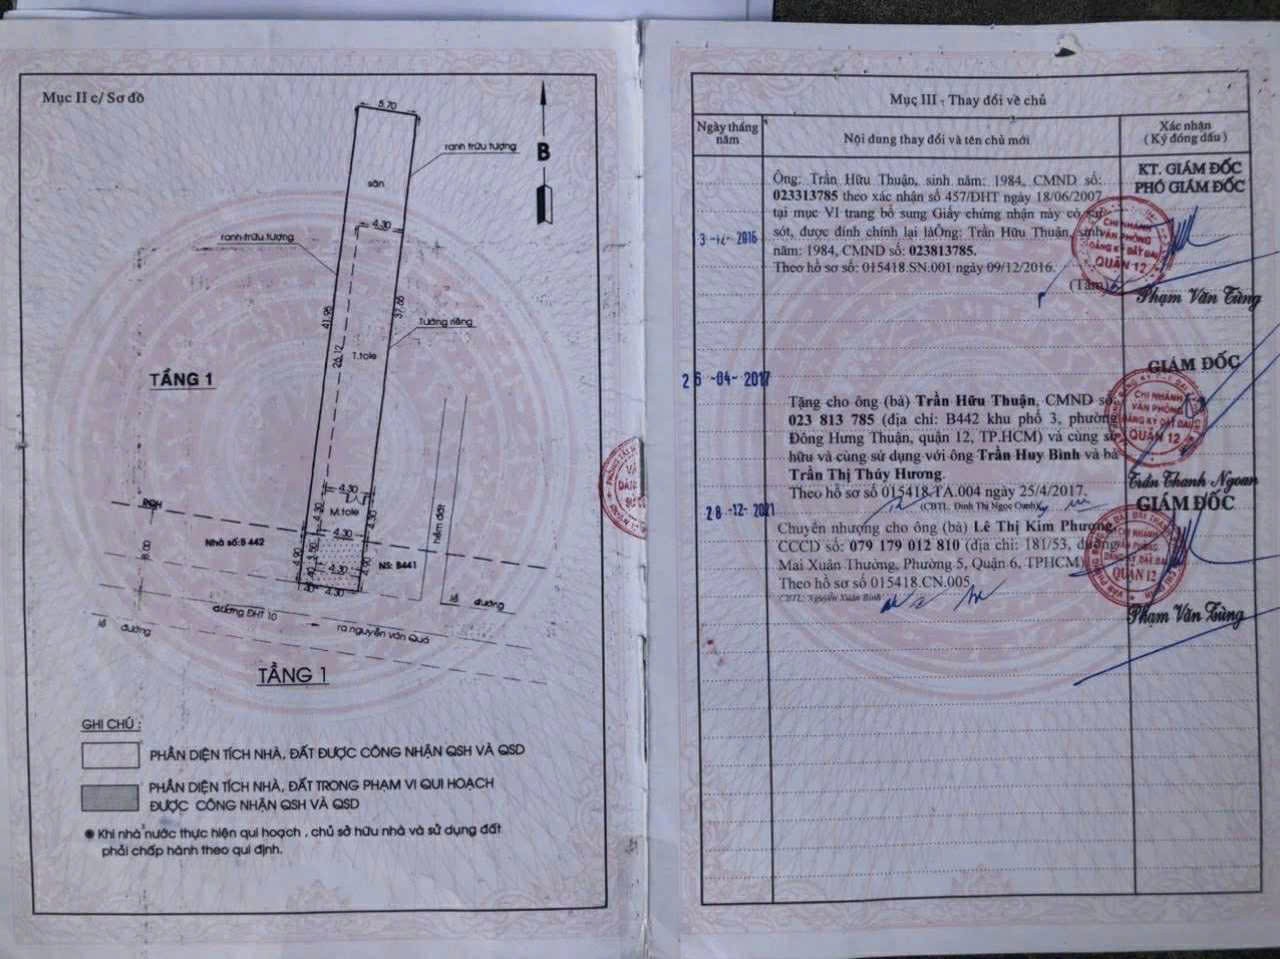 Mục II c/ Sơ đồ
5.70
ranh trừu tượng
B
sân
4.30
ranh trừu tượng
41.98
37.66
Tường riêng
26.12
T.tole
TẦNG 1
4.30
M.tole
4.30
4.30
4.30
hẻm đất
Nhà số: B 442
8.00
4.90
3.50
4.90
NS: B441
4.30
4.30
lề đường
đường ĐHT 10
ra nguyễn văn Quá
lề đường
TẦNG 1
GHI CHÚ :
PHẦN DIỆN TÍCH NHÀ, ĐẤT ĐƯỢC CÔNG NHẬN QSH VÀ QSD
PHẦN DIỆN TÍCH NHÀ, ĐẤT TRONG PHẠM VI QUI HOẠCH
ĐƯỢC CÔNG NHẬN QSH VÀ QSD
Khi nhà nước thực hiện qui hoạch , chủ sở hữu nhà và sử dụng đất
phải chấp hành theo qui định.
Mục III - Thay đổi về chủ
Ngày tháng năm
Nội dung thay đổi và tên chủ mới
Xác nhận
( Ký đóng dấu )
KT. GIÁM ĐỐC
PHÓ GIÁM ĐỐC
Ông: Trần Hữu Thuận, sinh năm: 1984, CMND số:
023313785 theo xác nhận số 457/ĐHT ngày 18/06/2007
tại mục VI trang bổ sung Giấy chứng nhận này có sai
sót, được đính chính lại làÔng: Trần Hữu Thuận, sinh
năm: 1984, CMND số: 023813785.
Theo hồ sơ số: 015418.SN.001 ngày 09/12/2016.
(Tâm)
3 -12- 2016
CHI NHÁNH
VĂN PHÒNG
ĐĂNG KÝ ĐẤT ĐAI
QUẬN 12
Phạm Văn Tùng
26 -04- 2017
GIÁM ĐỐC
Tặng cho ông (bà) Trần Hữu Thuận, CMND số:
023 813 785 (địa chỉ: B442 khu phố 3, phường
Đông Hưng Thuận, quận 12, TP.HCM) và cùng sở
hữu và cùng sử dụng với ông Trần Huy Bình và bà
Trần Thị Thúy Hương.
Theo hồ sơ số 015418.TA.004 ngày 25/4/2017.
(CBTL: Đinh Thị Ngọc Oanh)
CHI NHÁNH
VĂN PHÒNG
ĐĂNG KÝ ĐẤT ĐAI
QUẬN 12
Trần Thanh Ngoan
28 -12- 2021
GIÁM ĐỐC
Chuyển nhượng cho ông (bà) Lê Thị Kim Phượng,
CCCD số: 079 179 012 810 (địa chỉ: 181/53, đường
Mai Xuân Thưởng, Phường 5, Quận 6, TPHCM)
Theo hồ sơ số 015418.CN.005
CBTL: Nguyễn Xuân Bình
CHI NHÁNH
QUẬN 12
Phạm Văn Tùng